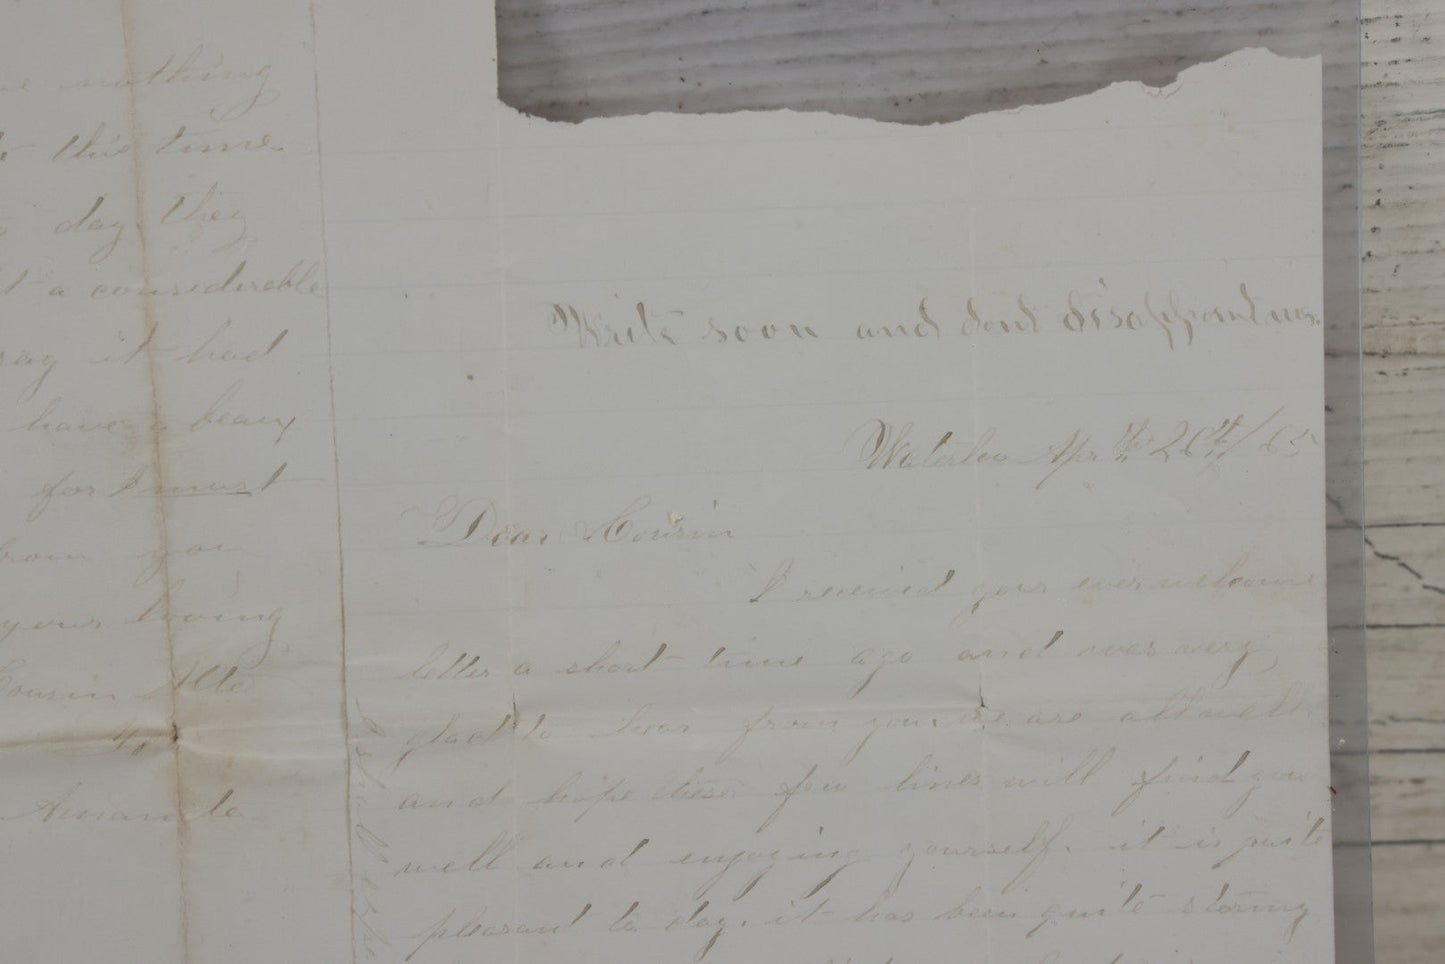 nothing
this time
day they
a considerable
it had
have a beaux
for I must
from you
your loving
Cousin Alta
to
Amanda
Write soon and dont disappoint me.
Waterloo Apr 26th/65
Dear Cousin
I received your ever welcome
letter a short time ago and was very
glad to hear from you. we are all well
and hope these few lines will find you
well and enjoying yourself. it is quite
pleasant to day. it has been quite storing
I shall expe